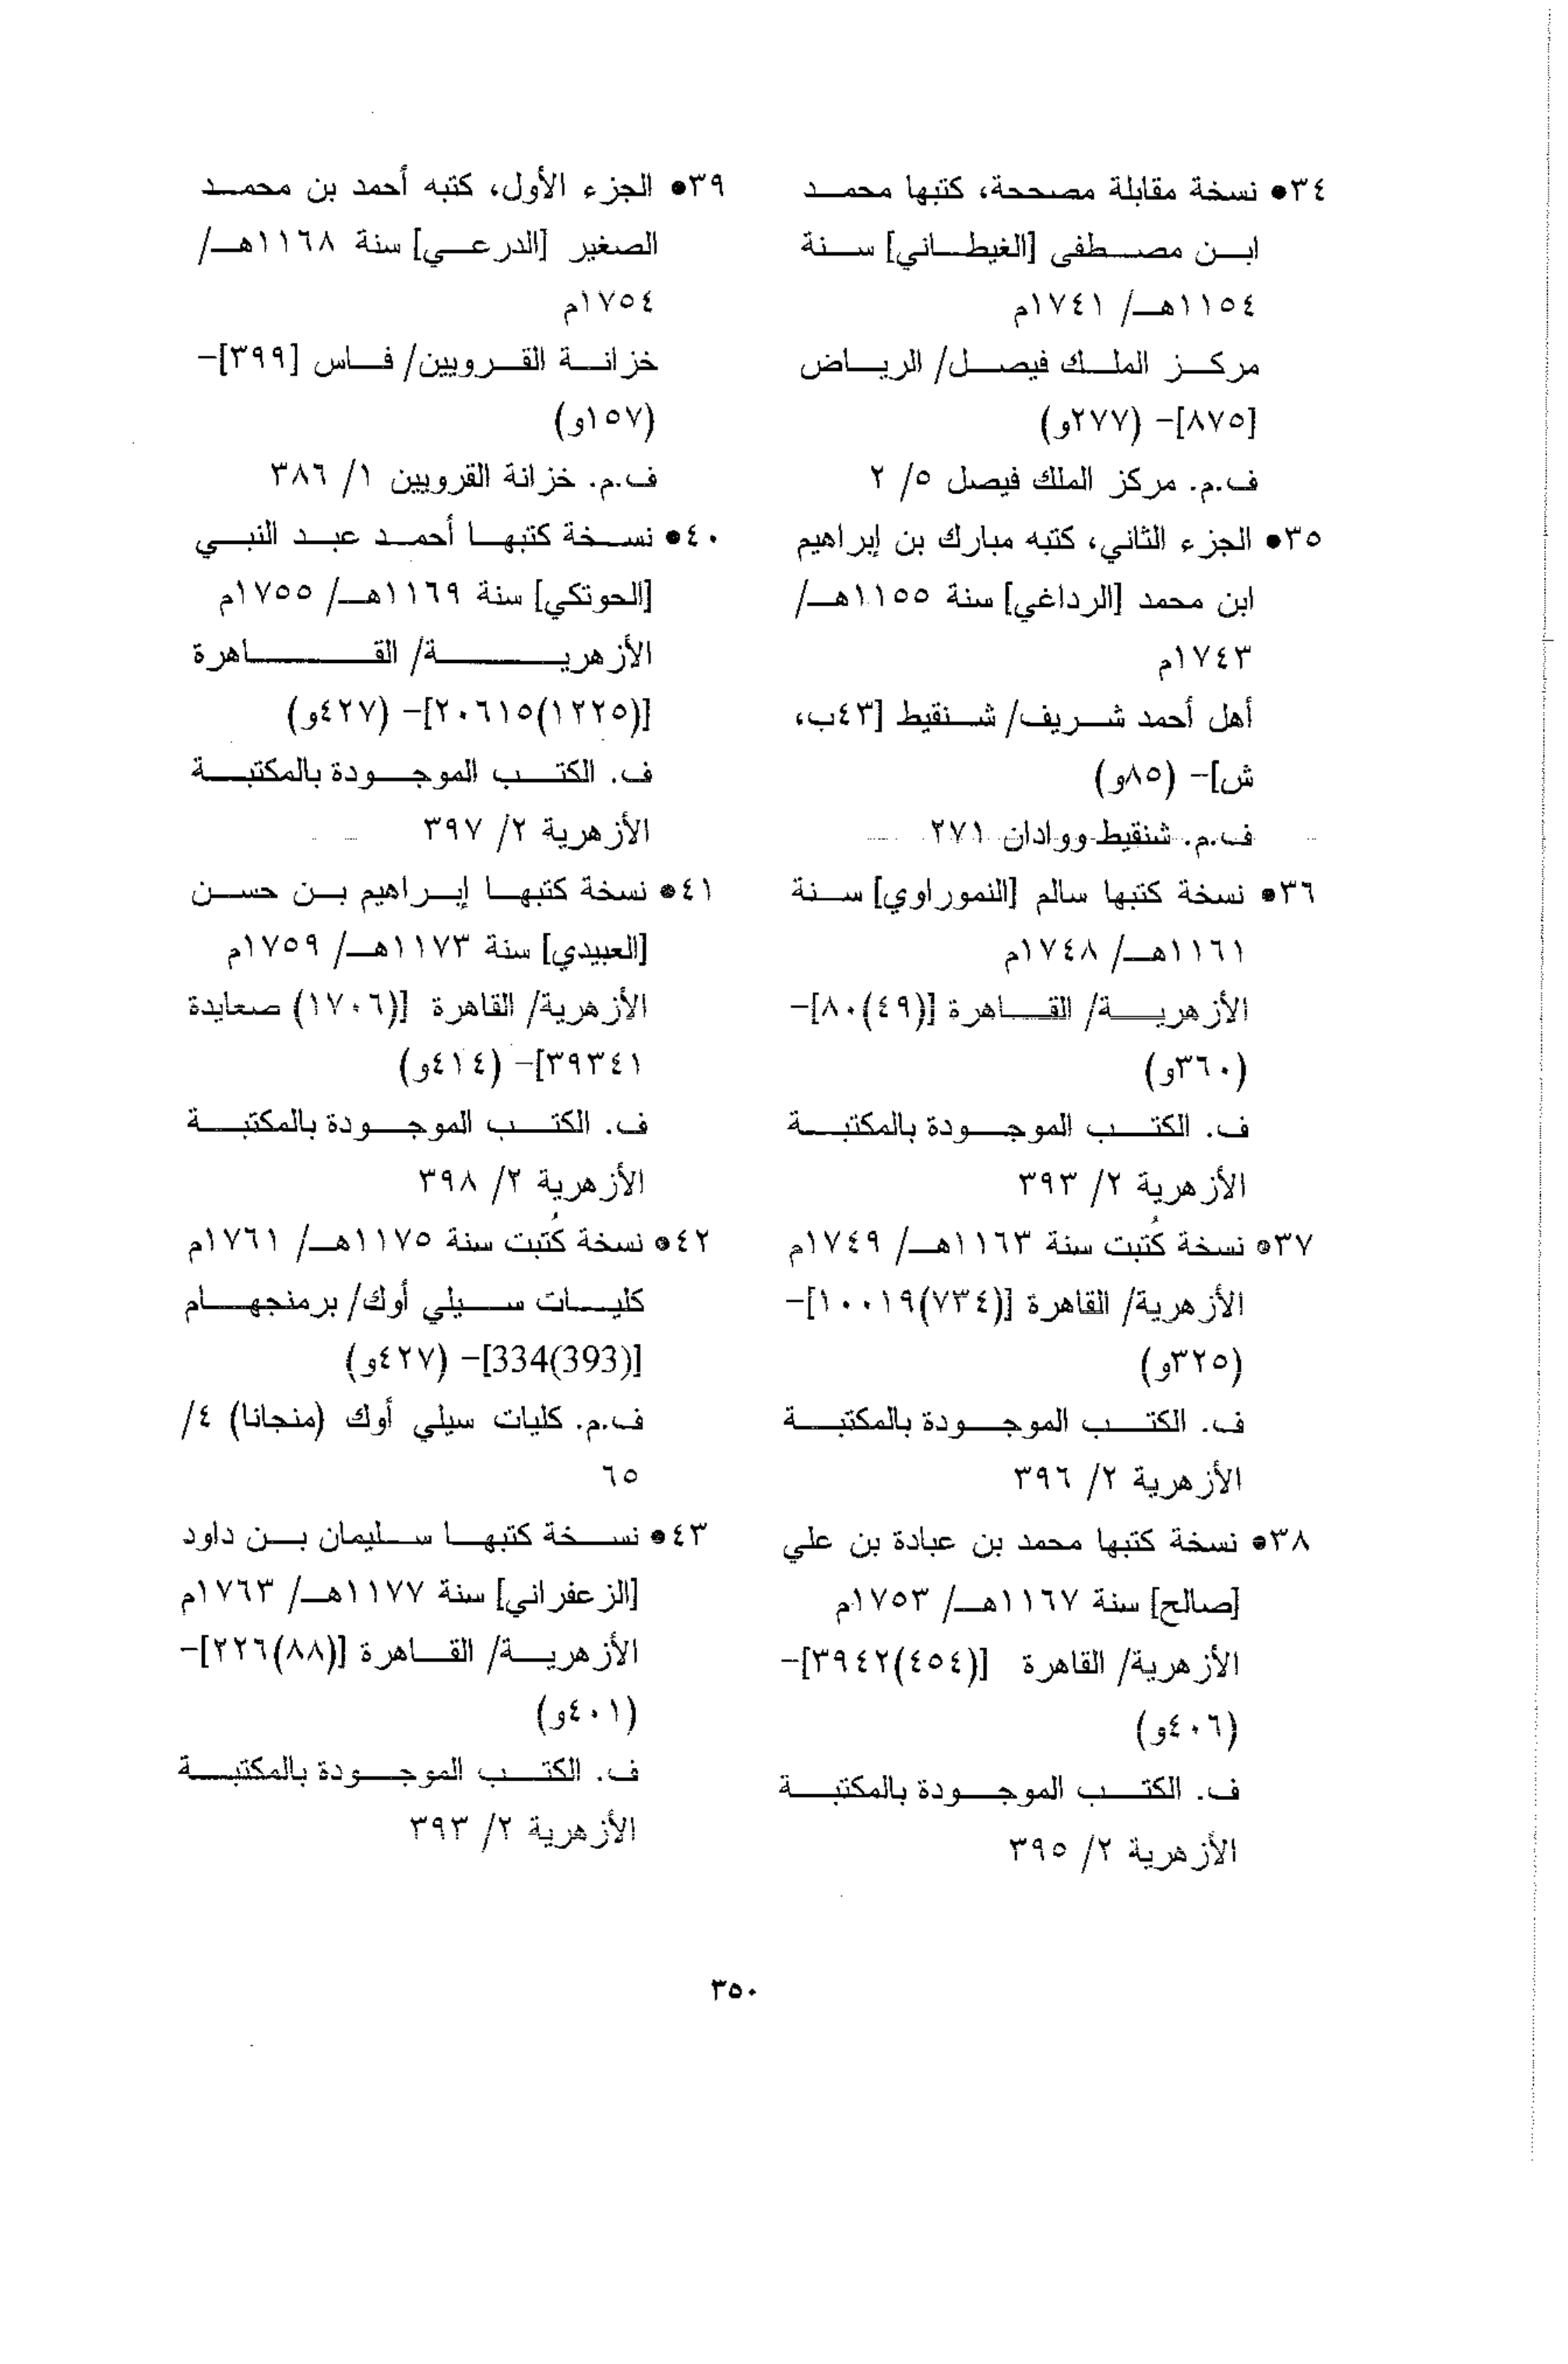 ٣٤• نسخة مقابلة مصححة، كتبها محمد
ابن مصطفى [الغيطاني] سنة
١١٥٤هـ/ ١٧٤١م
مركز الملك فيصل/ الرياض
[٨٧٥]- (٢٧٧و)
ف.م. مركز الملك فيصل ٥/ ٢
٣٥• الجزء الثاني، كتبه مبارك بن إبراهيم
ابن محمد [الرداغي] سنة ١١٥٥هـ/
١٧٤٣م
أهل أحمد شريف/ شنقيط [٤٣ب،
ش]- (٨٥و)
ف.م. شنقيط ووادان ٢٧١
٣٦• نسخة كتبها سالم [النموراوي] سنة
١١٦١هـ/ ١٧٤٨م
الأزهرية/ القاهرة [(٤٩)٨٠]-
(٣٦٠و)
ف. الكتب الموجودة بالمكتبة
الأزهرية ٢/ ٣٩٣
٣٧• نسخة كُتبت سنة ١١٦٣هـ/ ١٧٤٩م
الأزهرية/ القاهرة [(٧٣٤)١٠٠١٩]-
(٣٢٥و)
ف. الكتب الموجودة بالمكتبة
الأزهرية ٢/ ٣٩٦
٣٨• نسخة كتبها محمد بن عبادة بن علي
[صالح] سنة ١١٦٧هـ/ ١٧٥٣م
الأزهرية/ القاهرة [(٤٥٤)٣٩٤٢]-
(٤٠٦و)
ف. الكتب الموجودة بالمكتبة
الأزهرية ٢/ ٣٩٥
٣٩• الجزء الأول، كتبه أحمد بن محمد
الصغير [الدرعي] سنة ١١٦٨هـ/
١٧٥٤م
خزانة القرويين/ فاس [٣٩٩]-
(١٥٧و)
ف.م. خزانة القرويين ١/ ٣٨٦
٤٠• نسخة كتبها أحمد عبد النبي
[الحوتكي] سنة ١١٦٩هـ/ ١٧٥٥م
الأزهرية/ القاهرة
[(١٢٢٥)٢٠٦١٥]- (٤٢٧و)
ف. الكتب الموجودة بالمكتبة
الأزهرية ٢/ ٣٩٧
٤١• نسخة كتبها إبراهيم بن حسن
[العبيدي] سنة ١١٧٣هـ/ ١٧٥٩م
الأزهرية/ القاهرة [(١٧٠٦) صعايدة
٣٩٣٤١]- (٤١٤و)
ف. الكتب الموجودة بالمكتبة
الأزهرية ٢/ ٣٩٨
٤٢• نسخة كُتبت سنة ١١٧٥هـ/ ١٧٦١م
كليات سيلي أوك/ برمنجهام
[(393)334]- (٤٢٧و)
ف.م. كليات سيلي أوك (منجانا) ٤/
٦٥
٤٣• نسخة كتبها سليمان بن داود
[الزعفراني] سنة ١١٧٧هـ/ ١٧٦٣م
الأزهرية/ القاهرة [(٨٨)٢٢٦]-
(٤٠١و)
ف. الكتب الموجودة بالمكتبة
الأزهرية ٢/ ٣٩٣
٣٥٠